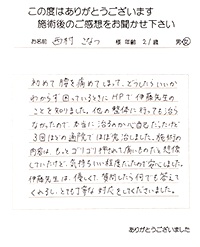 この度はありがとうございます
施術後のご感想をお聞かせ下さい
お名前 西村 こなつ 様 年齢 21歳 男・女
初めて腰を痛めてしまって、どうしたらいいか
わからず困っているときにHPで伊藤先生の
ことを知りました。他の整体に行っても治ら
なかったので、本当に治るのか心配だったけど
3回ほどの通院でほぼ完治しました。施術の
内容は、もっとゴリゴリ押されて痛いものだと想像
していたけど、気持ちいい程度だったので安心しました。
伊藤先生は、優しくて質問したら何でも答えて
くれるし、とても丁寧な対応をしてくださいました。
ありがとうございました